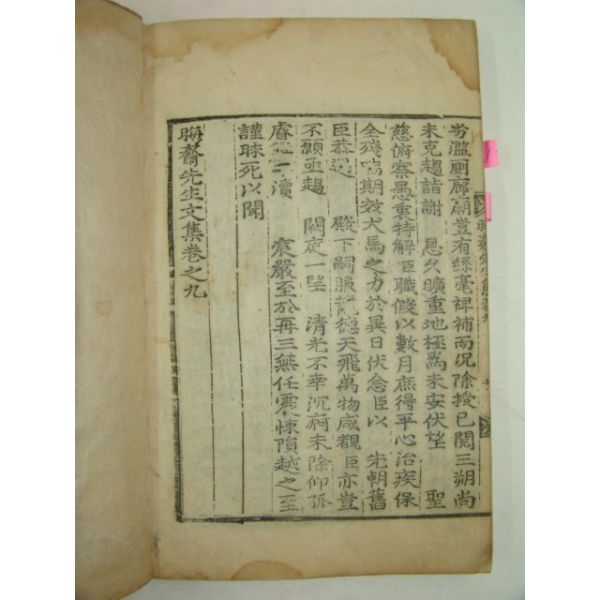 劣濫厠廊廟豈有絲毫裨補而况除授已閱三朔尚
未克趨詣謝 恩久曠重地極爲未安伏望 聖
慈俯察愚衷特解臣職假以數月庶得平心治疾保
全殘喘期效犬馬之力於異日伏念臣以 先朝舊
臣恭遇 殿下嗣服龍德天飛萬物咸覩臣亦豈
不願亟趨 闕庭一望 清光不幸沉痾未除仰孤
睿 瀆 宸嚴至於再三無任震悚隕越之至
謹昧死以聞
晦齋先生文集卷之九